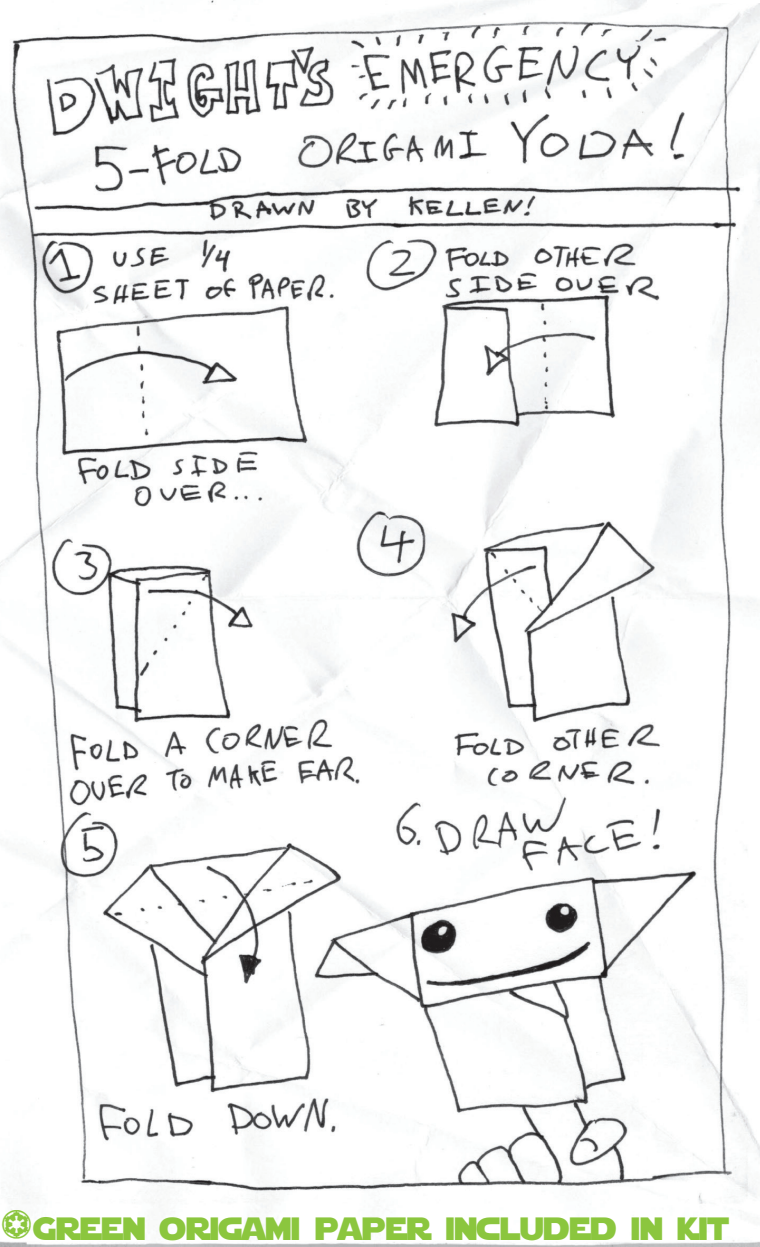 DWIGHT'S EMERGENCY
5-FOLD ORIGAMI YODA!
DRAWN BY KELLEN!
1 USE 1/4
SHEET OF PAPER.
FOLD SIDE
OVER...
2 FOLD OTHER
SIDE OVER
3
FOLD A CORNER
OVER TO MAKE EAR.
4
FOLD OTHER
CORNER.
5
FOLD DOWN.
6. DRAW
FACE!
GREEN ORIGAMI PAPER INCLUDED IN KIT